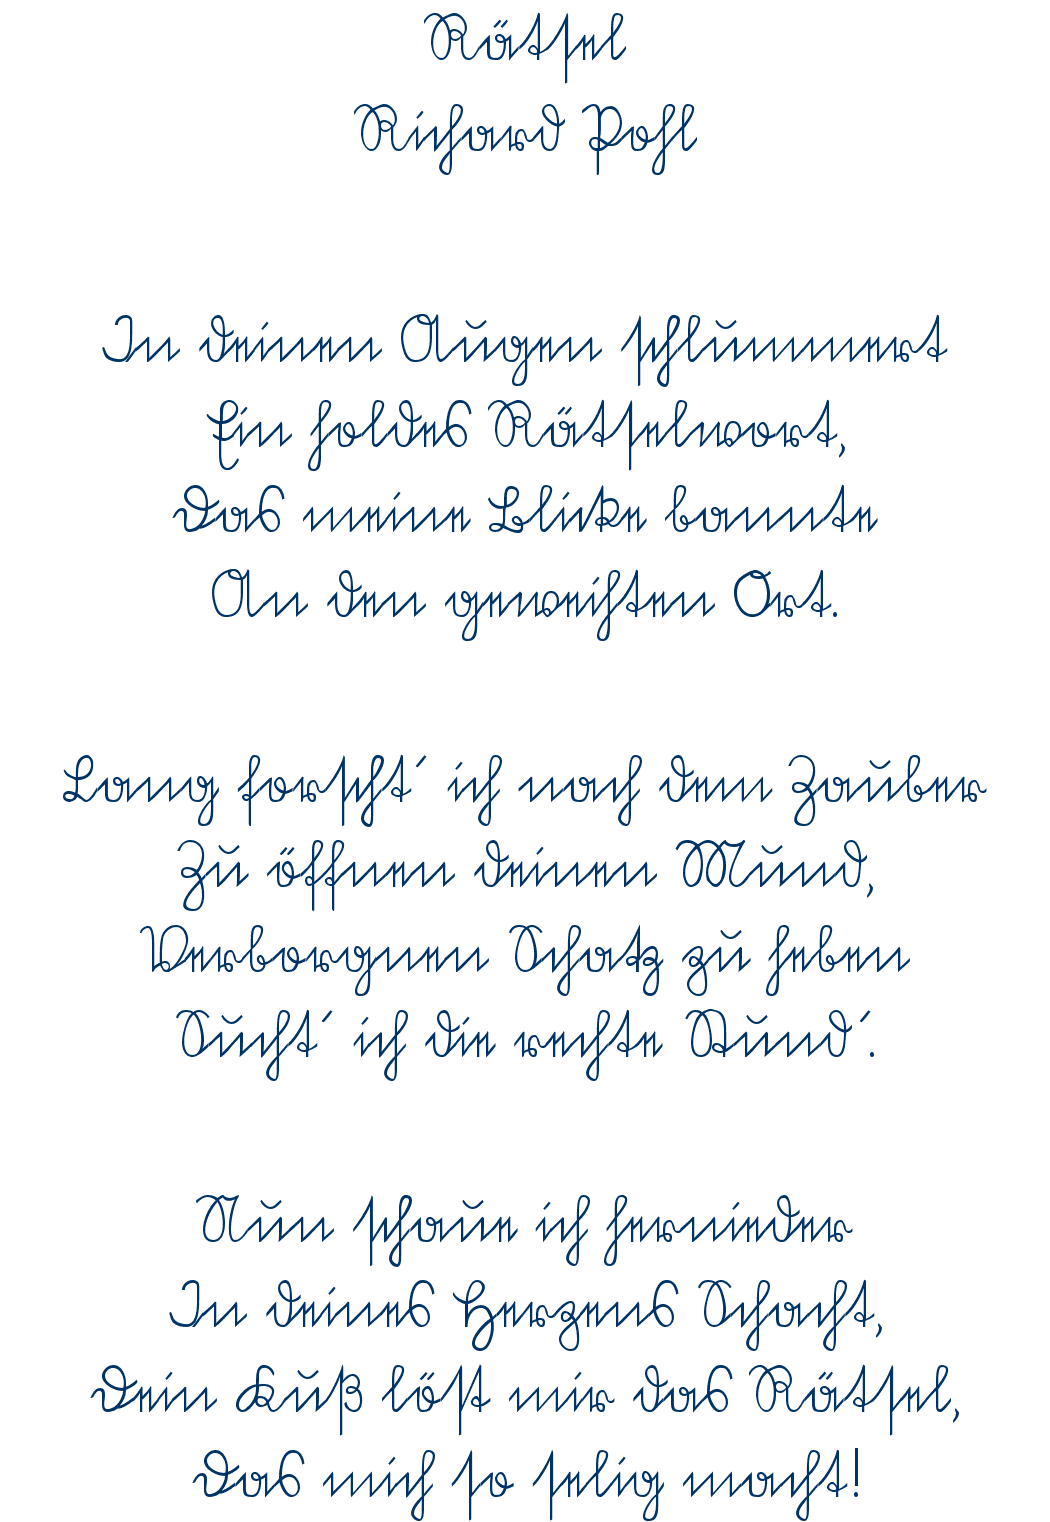 Rätsel
Richard Pohl
In deinen Augen schlummert
Ein holdes Rätselwort,
Das meine Blicke bannte
An den geweihten Ort.
Lang forscht´ ich nach dem Zauber
Zu öffnen deinen Mund,
Verborgnen Schatz zu heben
Sucht´ ich die rechte Stund´.
Nun schaue ich hernieder
In deines Herzens Schacht,
Dein Kuß löst mir das Rätsel,
Das mich so selig macht!